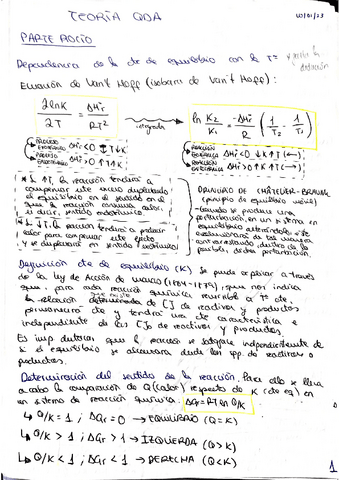 TEORÍA QDA
PARTE ROCÍO
Dependencia de la cte de equilibrio con la Tª
Ecuación de Van't Hoff (isobara de Van't Hoff):
∂lnK/∂T = ΔHr/RT² integrada ln K2/K1 = -ΔHr/R (1/T2 - 1/T1)
PROCESO EXOTÉRMICO ΔHr<0 ↑T↓K
REACCIÓN EXOTÉRMICA ΔHr<0 ↓K↑T (←)
PROCESO ENDOTÉRMICO ΔHr>0 ↑T↑K
REACCIÓN ENDOTÉRMICA ΔHr>0 ↑K↑T (→)
* Si ↑T, la reacción tenderá a
compensar este exceso
el equilibrio en el sentido en el
que la reacción consume calor,
es decir, sentido endotérmico
* Si ↓T, la reacción tenderá a producir
calor para compensar este efecto
y se desplazará en sentido exotérmico
PRINCIPIO DE CHÂTELIER-BRAUN
(principio de equilibrio móvil)
Cuando se produce una
perturbación en un sistema en
equilibrio, este
de tal manera
contrarrestando, dentro de lo
posible, dicha perturbación.
Definición cte de equilibrio (K) Se puede explicar a través
de la Ley de Acción de masas (1864-1879), que nos indica
que, para cada reacción química reversible a Tª cte,
la relación determinada de [] de reactivos y productos
permanece cte y tendrá una cte característica e
independiente de las [] de reactivos y productos.
Es imp destacar que la reacción se satisface independientemente de
si el equilibrio se alcanzara desde los pp. de reactivos o
productos.
Determinación del sentido de la reacción. Para ello se lleva
a cabo la comparación de Q (valor) respecto de K (cte eq) en
un sistema de reacción química. ΔGr = RT ln Q/K
↳ Q/K = 1 ; ΔGr = 0 → EQUILIBRIO (Q = K)
↳ Q/K > 1 ; ΔGr > 1 → IZQUIERDA (Q > K)
↳ Q/K < 1 ; ΔGr < 1 → DERECHA (Q < K)
1